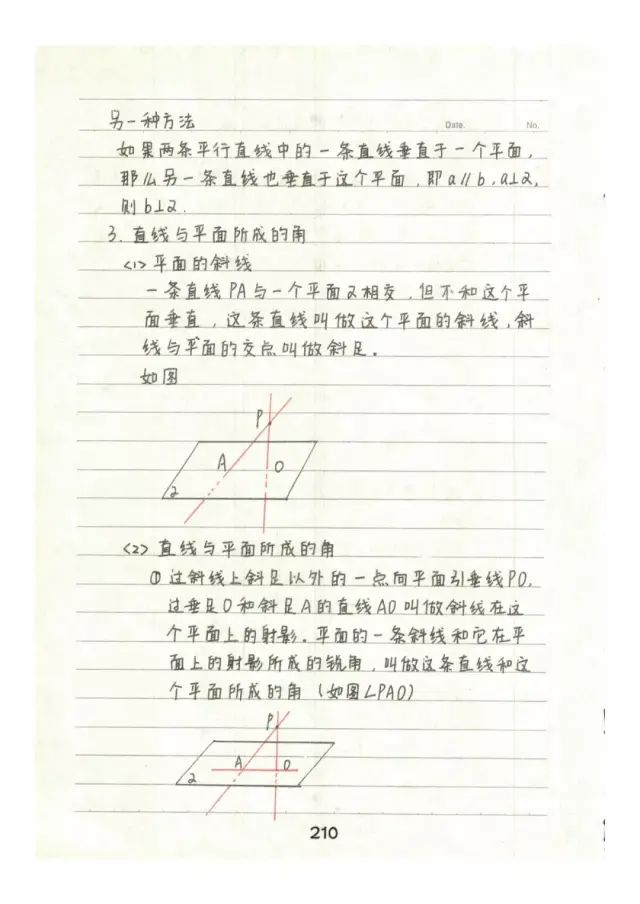 另一种方法
Date. No.
如果两条平行直线中的一条直线垂直于一个平面,
那么另一条直线也垂直于这个平面,即a∥b,a⊥α,
则b⊥α.
3.直线与平面所成的角
<1>平面的斜线
一条直线PA与一个平面α相交,但不和这个平
面垂直,这条直线叫做这个平面的斜线,斜
线与平面的交点叫做斜足.
如图
P
A O
α
<2>直线与平面所成的角
①过斜线上斜足以外的一点向平面引垂线PO,
过垂足O和斜足A的直线AO叫做斜线在这
个平面上的射影.平面的一条斜线和它在平
面上的射影所成的锐角,叫做这条直线和这
个平面所成的角(如图∠PAO)
P
A O
α
210